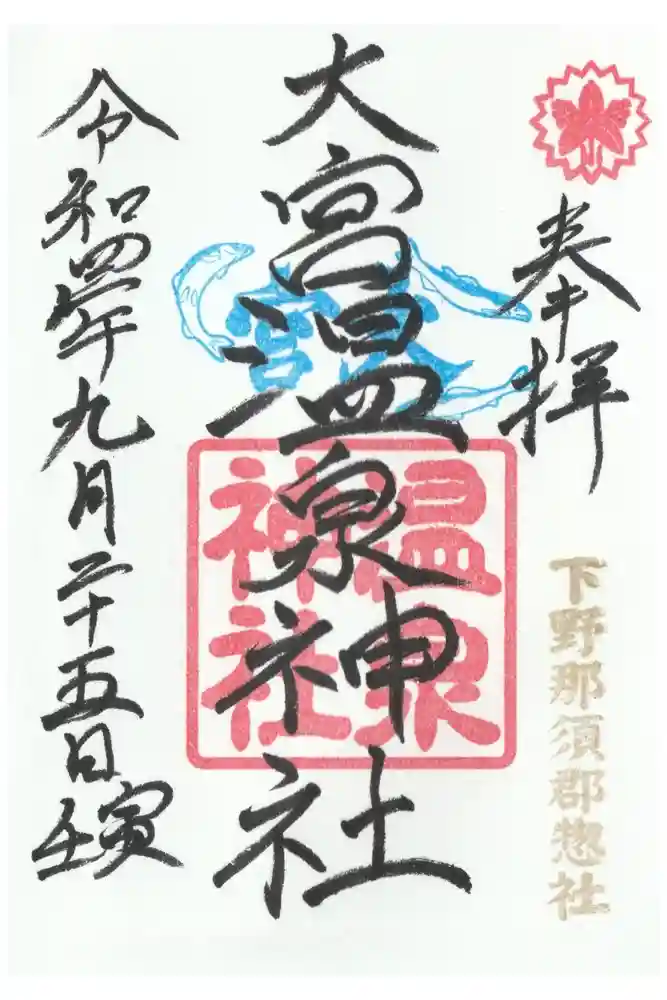 奉拝
下野那須郡惣社
大宮温泉神社
温泉
神社
宮
令和四年九月二十五日
壬寅